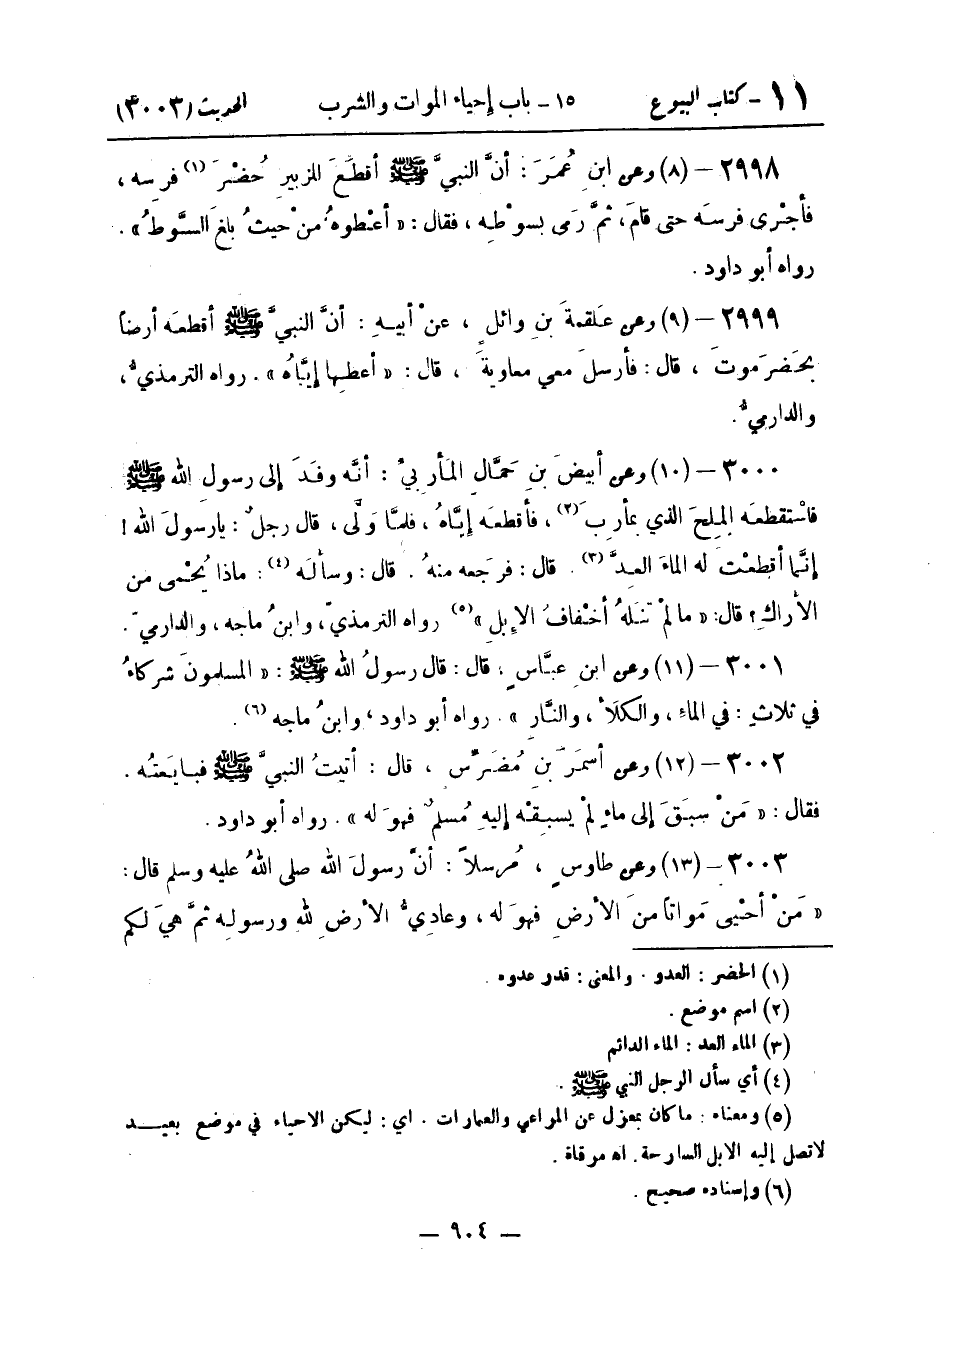 ١١ - كتاب البيوع ١٥ - باب إحياء الموات والشرب الحديث (٣٠٠٣)
٢٩٩٨ - (٨) وعن ابنِ عُمَرَ : أنَّ النبيَّ ﷺ أقطَعَ للزبيرِ حُضْرَ (١) فرسِه ،
فأجْرى فرسَه حتى قامَ، ثمَّ رَمى بسوْطِه ، فقال : « أعْطوهُ منْ حيثُ بلغَ السَّوطُ » .
رواه أبو داود .
٢٩٩٩ - (٩) وعن عَلقمةَ بنِ وائلٍ ، عنْ أبيهِ : أنَّ النبيَّ ﷺ أقطعَه أرضاً
بحَضرَموتَ ، قال : فأرسلَ معي معاويةَ ، قال : « أعطِها إيَّاهُ » . رواه الترمذيُّ ،
والدارميُّ.
٣٠٠٠ - (١٠) وعن أبيضَ بنِ حَمَّالِ المأرِبيِّ : أنَّه وفَدَ إلى رسولِ الله ﷺ
فاسْتقطعَه المِلحَ الذي بمأرِبَ (٢) ، فأقطعَه إيَّاهُ ، فلمَّا وَلَّى ، قال رجلٌ : يارسولَ الله !
إنَّما أقطعْتَ له الماءَ العِدَّ (٣) . قال : فرَجعه منهُ . قال : وسألَه (٤) : ماذا يُحْمى من
الأراكِ؟ قال: « مالمْ تنَلهُ أخْفافُ الإبلِ » (٥) رواه الترمذيّ، وابنُ ماجه ، والدارميّ .
٣٠٠١ - (١١) وعن ابنِ عبَّاسٍ ، قال : قال رسولُ الله ﷺ : « المسلمونَ شركاءُ
في ثلاثٍ : في الماءِ ، والكَلأْ ، والنَّارِ » . رواه أبو داود ، وابنُ ماجه (٦) .
٣٠٠٢ - (١٢) وعن أسمَرَ بنِ مُضَرِّسٍ ، قال : أتيتُ النبيَّ ﷺ فبايَعتُه .
فقال : « مَنْ سبَقَ إلى ماءٍ لمْ يسبِقْه إليهِ مُسلمٌ فهوَ له » . رواه أبو داود .
٣٠٠٣ - (١٣) وعن طاوسٍ ، مُرسلاً : أنَّ رسولَ الله صلى اللهُ عليه وسلم قال :
« مَنْ أحْيى مَواتاً منَ الأرضِ فهوَ له ، وعادِيُّ الأرضِ للهِ ورسولِه ثمَّ هيَ لكم
(١) الحضر : العدو . والمعنى : قدر عدوه .
(٢) اسم موضع .
(٣) الماء العد : الماء الدائم
(٤) أي سأل الرجل النبي ﷺ .
(٥) ومعناه : ماكان بمعزل عن المراعي والعمارات . اي : ليكن الاحياء في موضع بعيـــد
لاتصل إليه الابل السارحة . اه مرقاة .
(٦) وإسناده صحيح .
— ٩٠٤ —